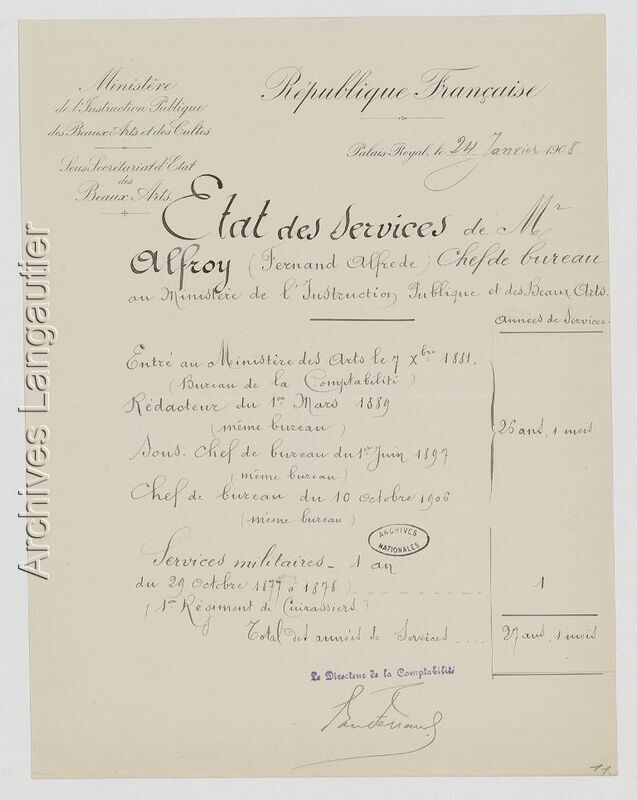 Ministère
de l'Instruction Publique
des Beaux Arts et des Cultes
Sous Secrétariat d'Etat
des
Beaux Arts.
République Française
Palais-Royal, le 24 Janvier 1908.
Etat des Services de Mr
Alfroy (Fernand Alfrede) Chef de bureau
au Ministère de l'Instruction Publique et des Beaux Arts.
années de Services.
Entré au Ministère des Arts le 7 Xbre 1881.
(Bureau de la Comptabilité)
Rédacteur du 1er Mars 1889
(même bureau)
26 ans, 1 mois
Sous-Chef de bureau du 1er Juin 1897
(même bureau)
Chef de bureau du 10 Octobre 1906
(même bureau)
ARCHIVES
NATIONALES
Services militaires - 1 an
du 29 Octobre 1877 à 1878)
1
(1er Régiment de Cuirassiers)
Total des années de Services .... 27 ans, 1 mois
Le Directeur de la Comptabilité
11
Archives Langautier